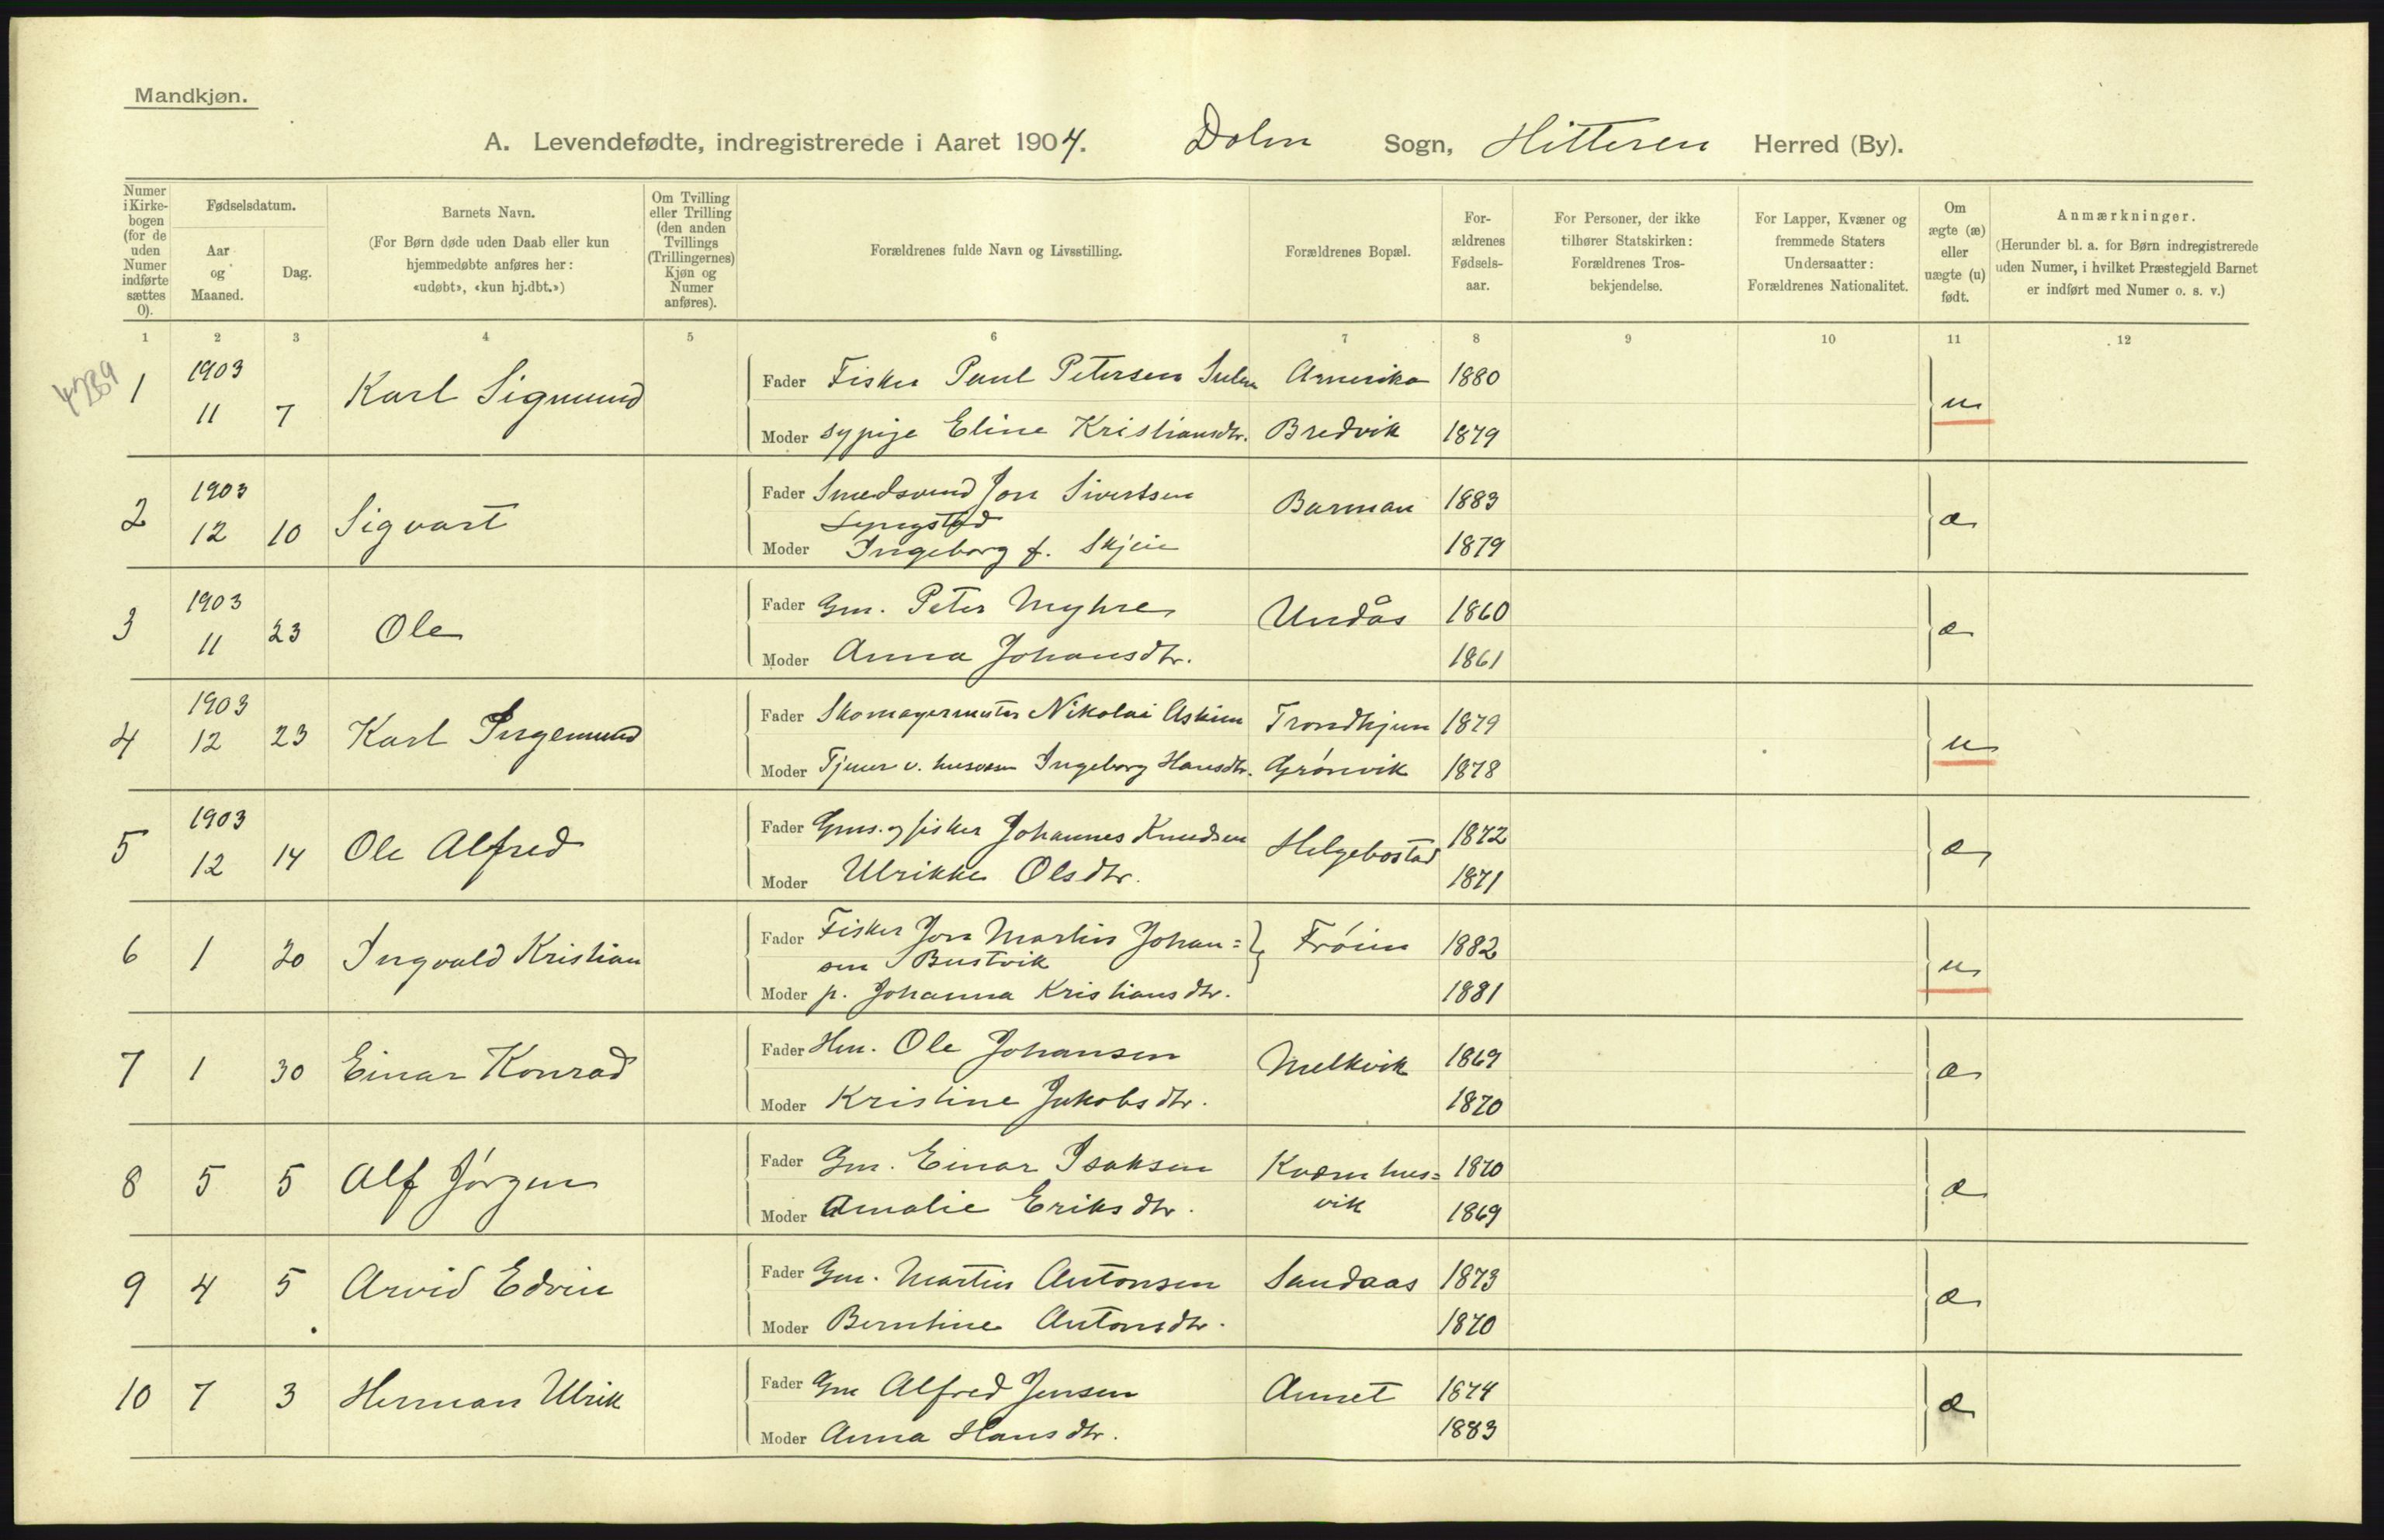 Mandkjøn.
A. Levendefødte, indregistrerede i Aaret 1904. Dolm Sogn, Hitteren Herred (By).
Numer i Kirkebogen (for de uden Numer indførte sættes 0).
Fødselsdatum.
Aar og Maaned.
Dag.
Barnets Navn.
(For Børn døde uden Daab eller kun hjemmedøbte anføres her: «udøbt», «kun hj.dbt.»)
Om Tvilling eller Trilling (den anden Tvillings (Trillingernes) Kjøn og Numer anføres).
Forældrenes fulde Navn og Livsstilling.
Forældrenes Bopæl.
Forældrenes Fødselsaar.
For Personer, der ikke tilhører Statskirken: Forældrenes Trosbekjendelse.
For Lapper, Kvæner og fremmede Staters Undersaatter: Forældrenes Nationalitet.
Om ægte (æ) eller uægte (u) født.
Anmærkninger.
(Herunder bl. a. for Børn indregistrerede uden Numer, i hvilket Præstegjeld Barnet er indført med Numer o. s. v.)
1 2 3 4 5 6 7 8 9 10 11 12
1 1903 11 7 Karl Sigmund
Fader Fisker Paul Petersen Amerika 1880
Moder sypige Eline Kristiansdtr. Bredvik 1879 u
2 1903 12 10 Sigvart
Fader Smedsvend Jon Sivertsen Barman 1883
Lyngstad
Moder Ingeborg f. Skjeie 1879 æ
3 1903 11 23 Ole
Fader Gm. Peter Myhre Undås 1860
Moder Anna Johansdtr. 1861 æ
4 1903 12 23 Karl Ingemund
Fader Skomagermester Nikolai Askim Trondhjem 1879
Moder Tjener v. husvæsen Ingeborg Hansdtr. Grönvik 1878 u
5 1903 12 14 Ole Alfred
Fader Gms. og fisker Johannes Knudsen Helgebostad 1872
Moder Ulrikke Olsdtr. 1871 æ
6 1 20 Ingvald Kristian
Fader Fisker Jon Martin Johan= Fröien 1882
sen Bustvik
Moder p. Johanna Kristiansdtr. 1881 u
7 1 30 Einar Konrad
Fader Hm. Ole Johansen Melkvik 1869
Moder Kristine Jakobsdtr. 1870 æ
8 5 5 Alf Jörgen
Fader Gm. Einar Isaksen Kværnhus= 1870
Moder Amalie Eriksdtr. vik 1869 æ
9 4 5 Arvid Edvin
Fader Gm. Martin Antonsen Sandaas 1873
Moder Berntine Antonsdtr. 1870 æ
10 7 3 Herman Ulrik
Fader Gm Alfred Jensen Aunet 1874
Moder Anna Hansdtr. 1883 æ